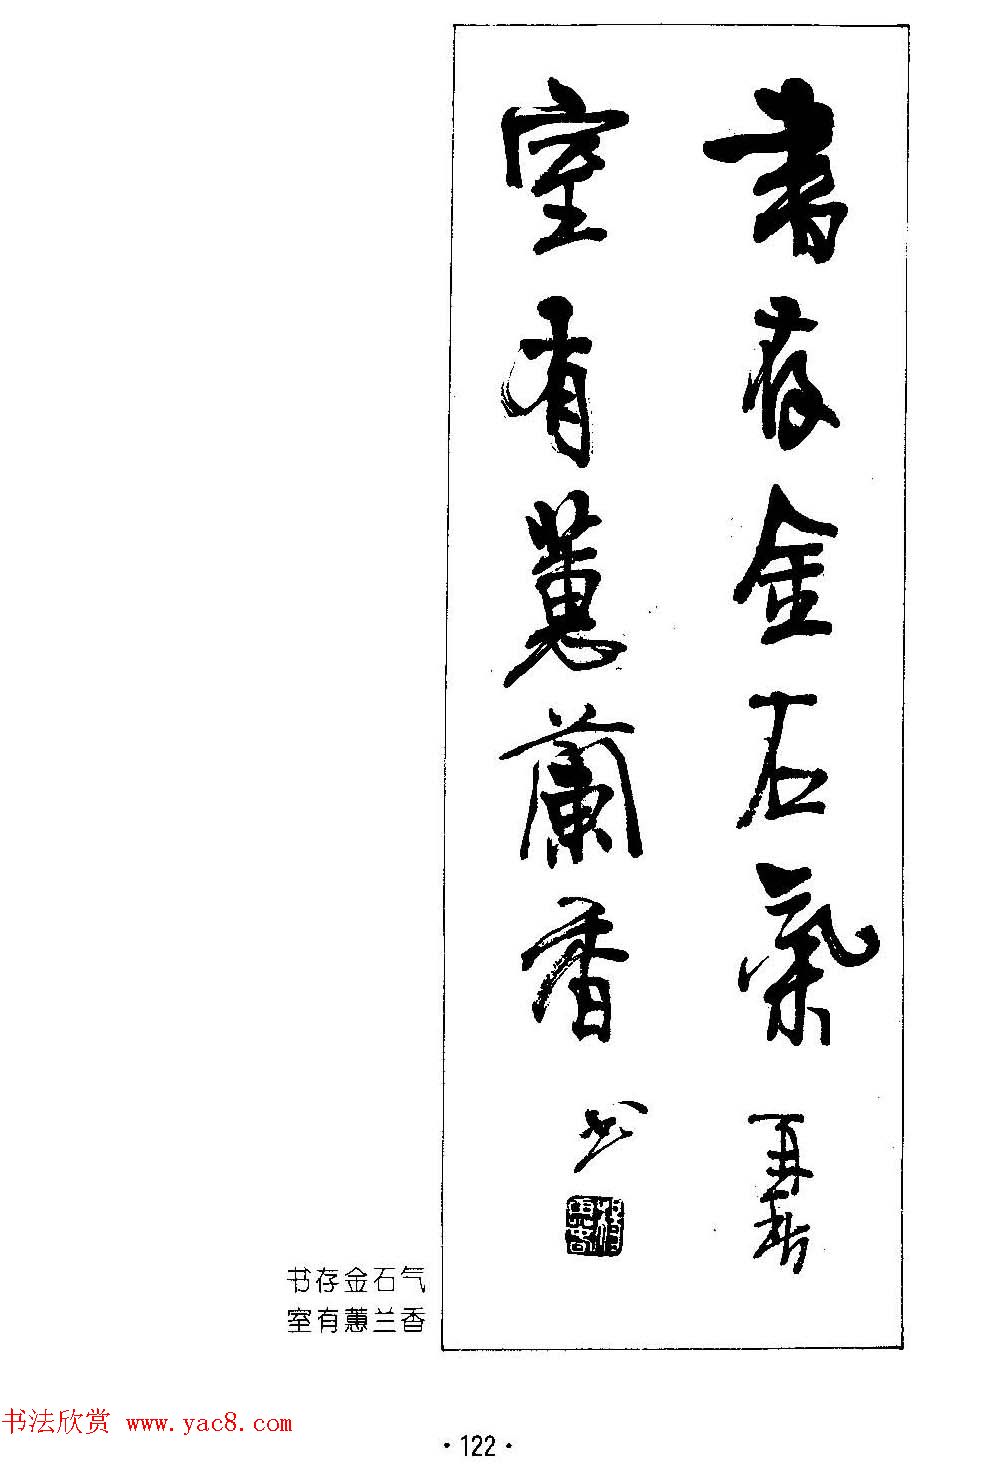 書存金石氣
室有蕙蘭香
书存金石气
室有蕙兰香
书法欣赏 www.yac8.com
·122·